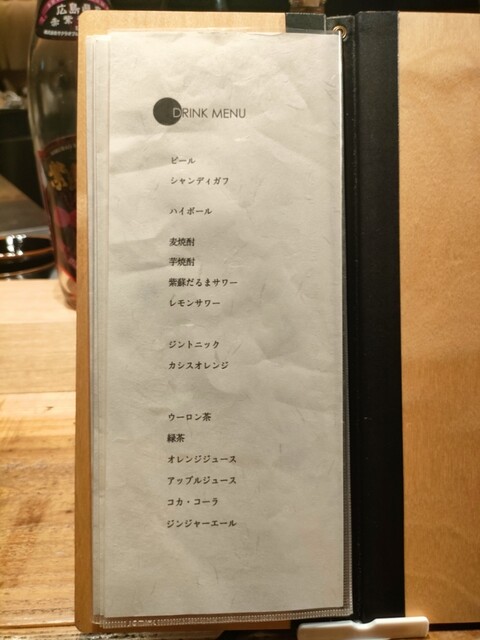 広島県
DRINK MENU
ビール
シャンディガフ
ハイボール
麦焼酎
芋焼酎
紫蘇だるまサワー
レモンサワー
ジントニック
カシスオレンジ
ウーロン茶
緑茶
オレンジジュース
アップルジュース
コカ・コーラ
ジンジャーエール